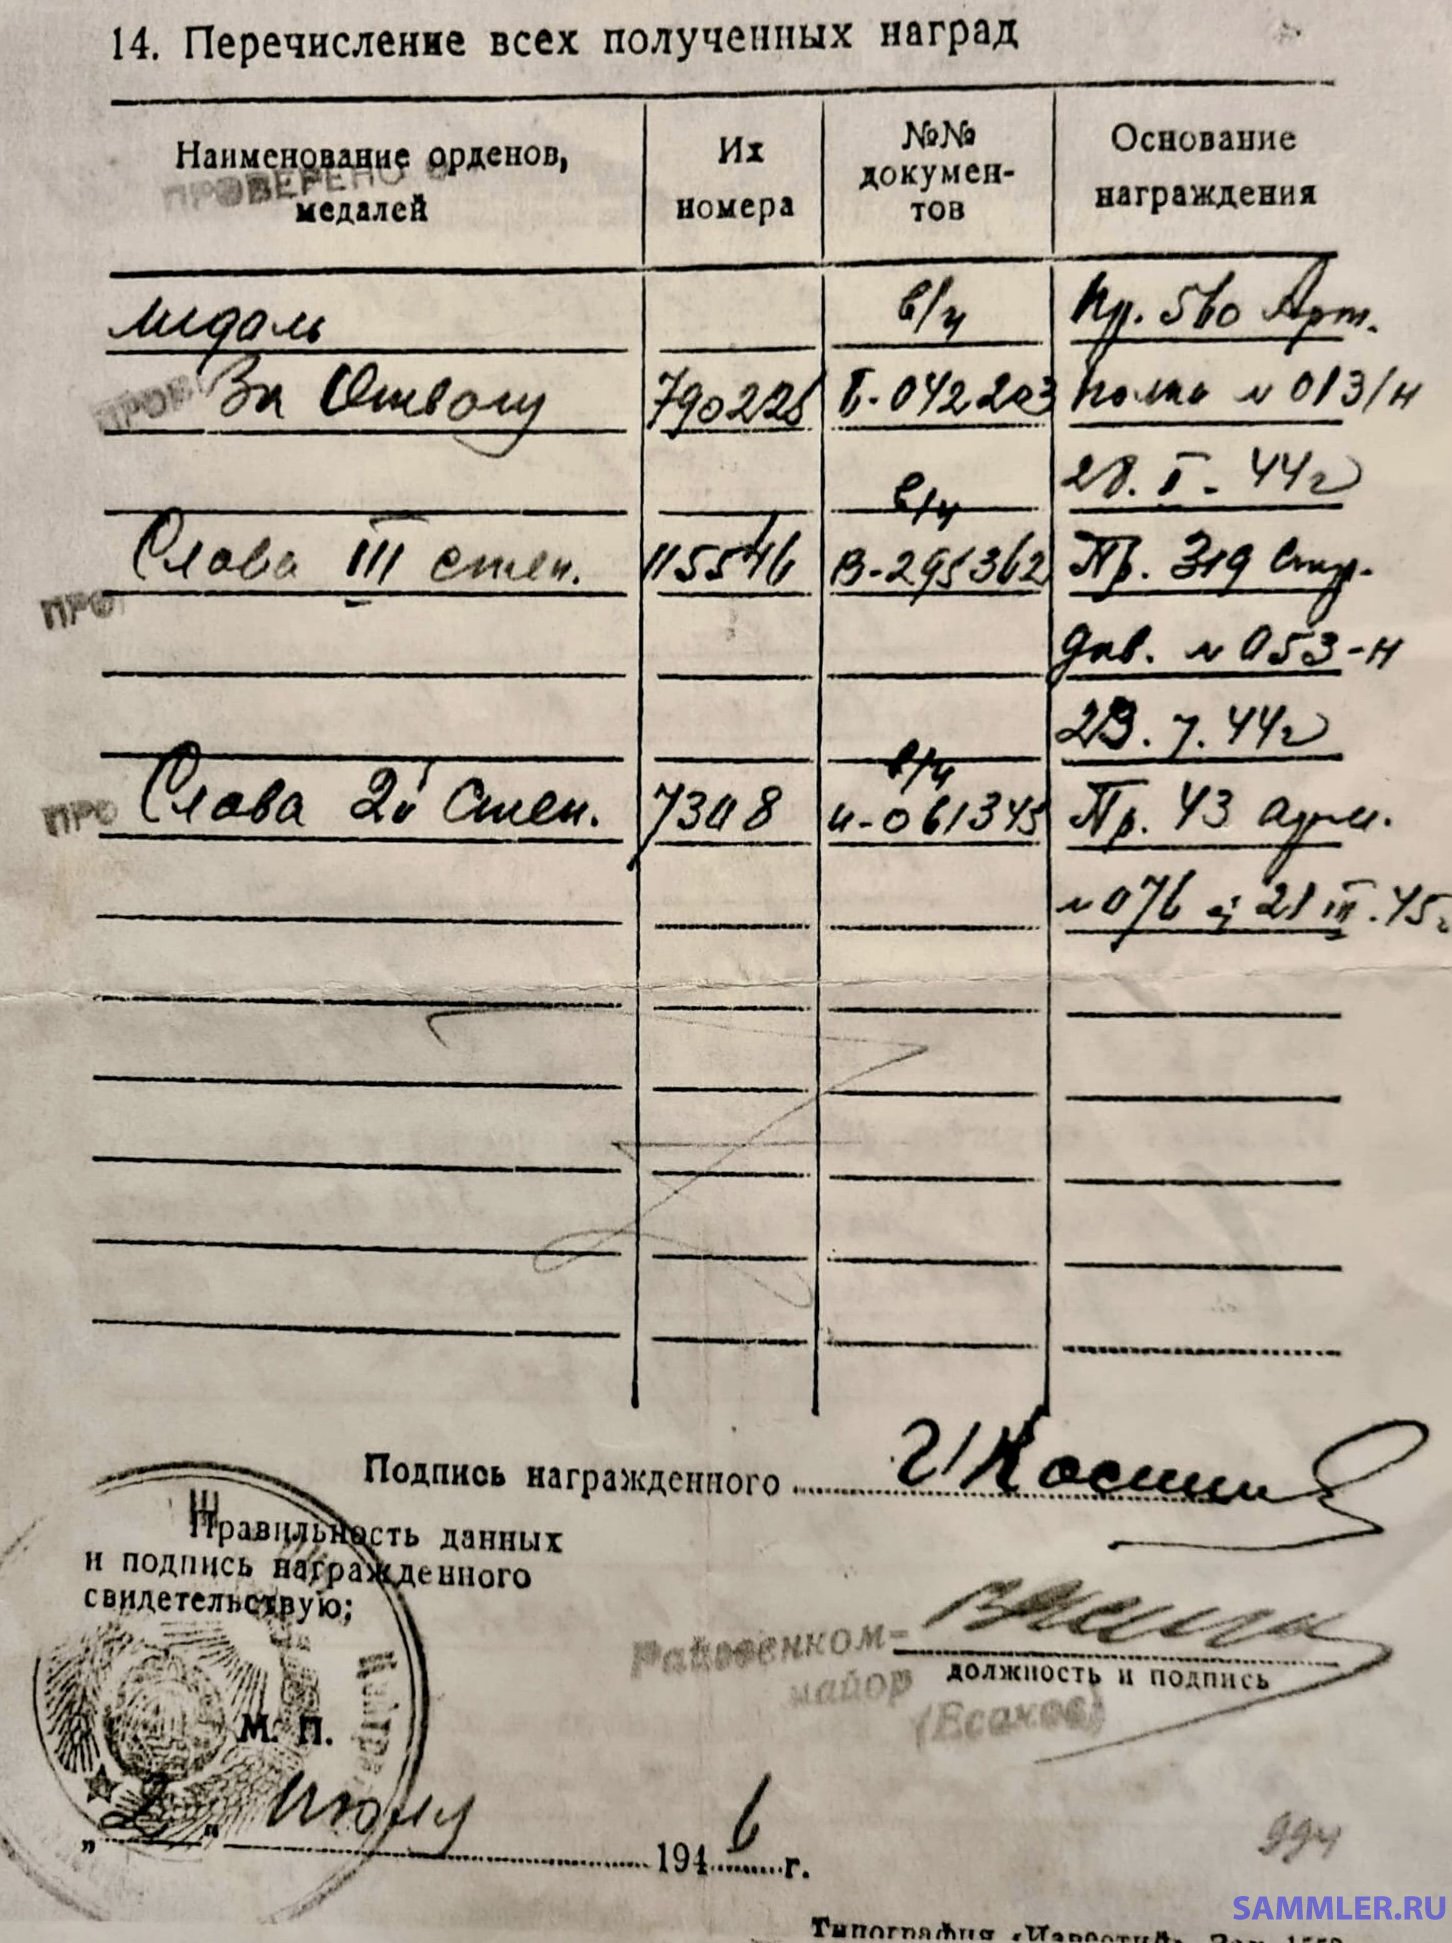 14. Перечисление всех полученных наград
Наименование орденов,
медалей
Их
номера
№№
докумен-
тов
Основание
награждения
ПРОВЕРЕНО
медаль в/ч Пр. 560 Арт.
За Отвагу 790225 Б-042203 полка N 013/н
28.I-44г
в/ч
Слава III степ. 115546 В-295362 Пр. 319 стр.
див. N 053-н
23.7.44г
в/ч
Слава 2й Степ. 7308 И-061345 Пр. 43 арм.
N 076 28 III.45г
Подпись награжденного
Правильность данных
и подпись награжденного
свидетельствую;
Райвоенком-
майор
(Есаков)
должность и подпись
М. П.
„2“ Июля 1946 г.
994
SAMMLER.RU
Типография «Известий»